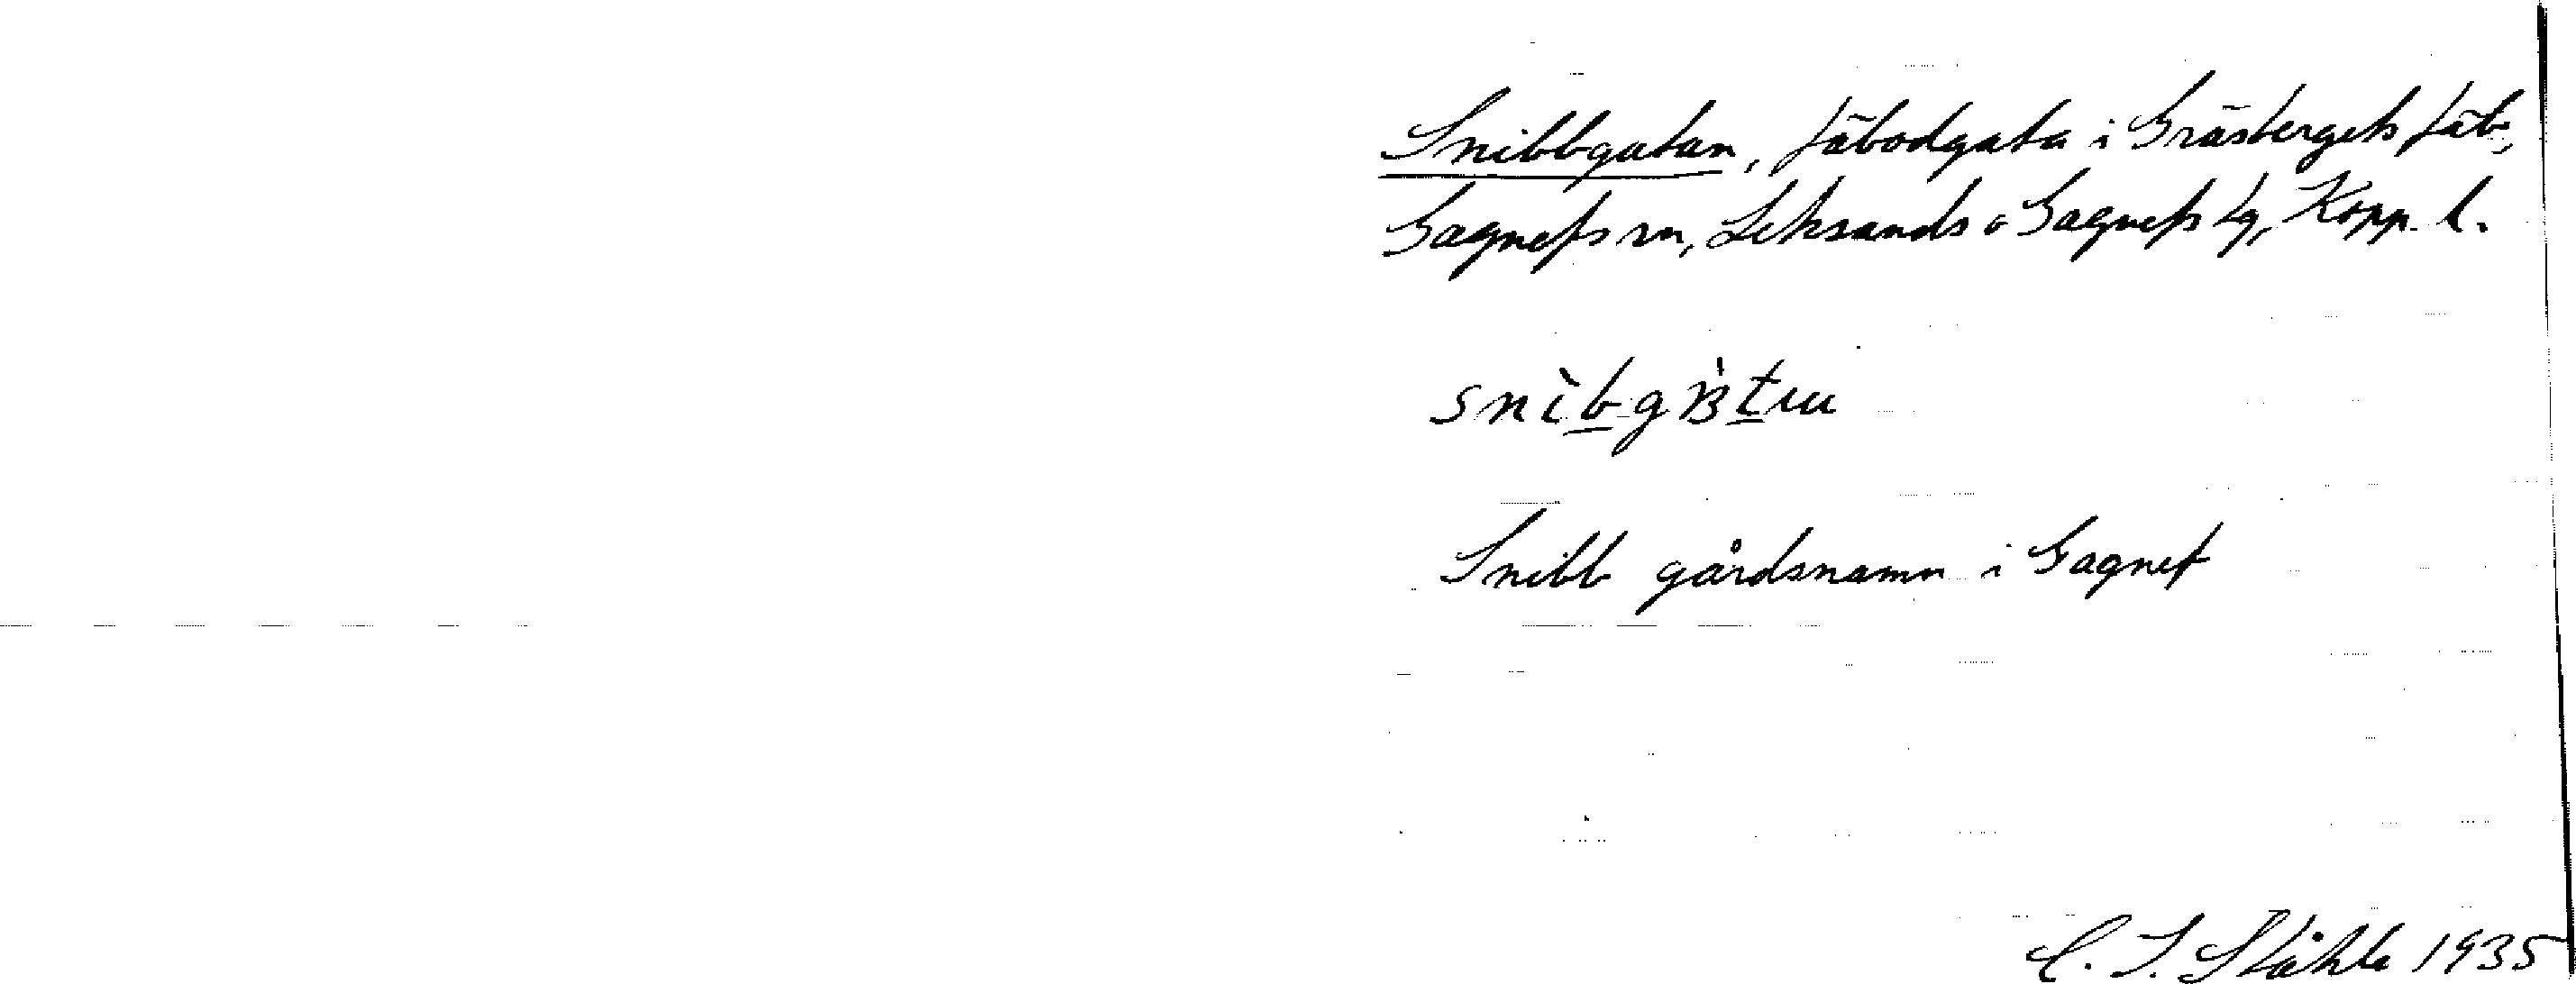 Snibbgatan, fäbodgata i Gräsbergets fäb,
Gagnefs sn, Leksands o Gagnefs tg, Kopp. l.
snìbgàtɯ
Snibb gårdsnamn i Gagnef
C. I. Ståhle 1935